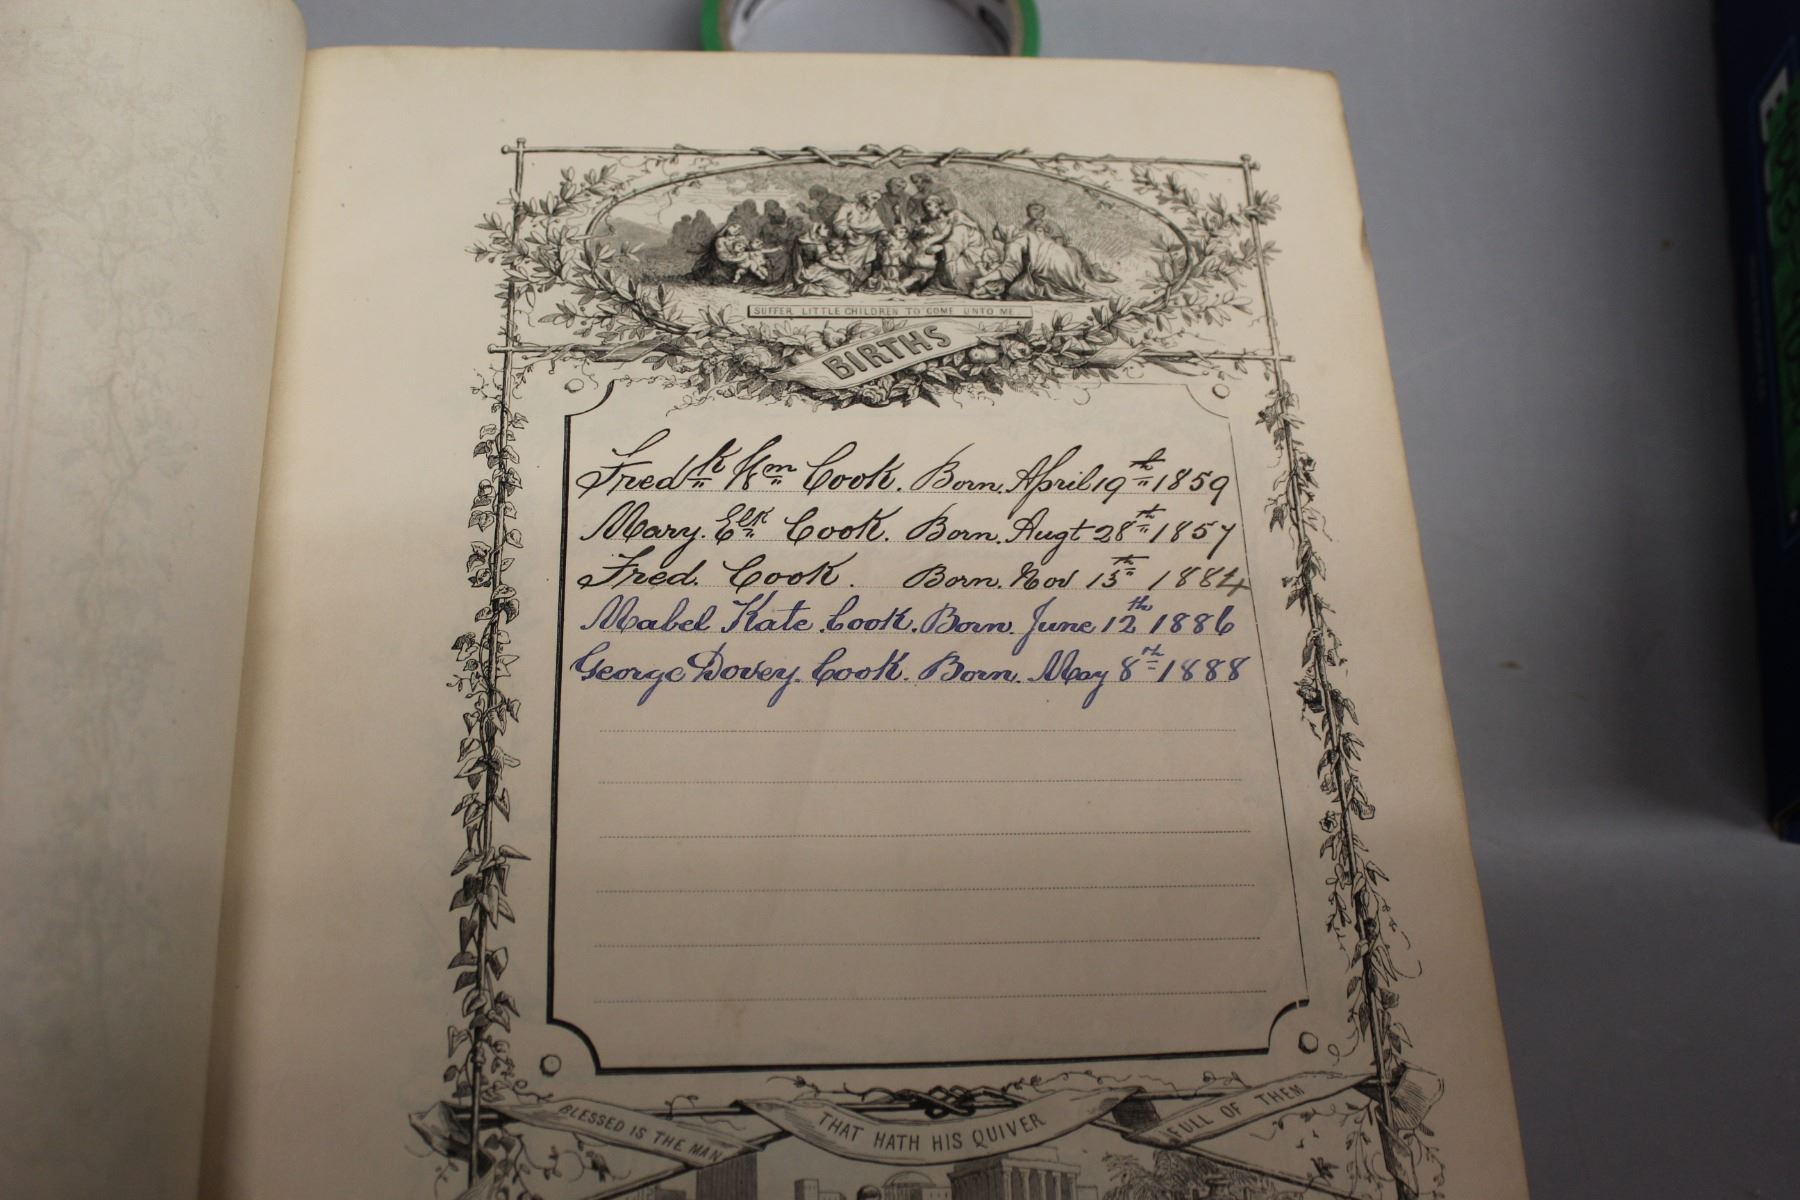 SUFFER LITTLE CHILDREN TO COME UNTO ME
BIRTHS
Fredk Wm Cook. Born. April 19th 1859
Mary. Elk Cook. Born. Augt 28th 1857
Fred. Cook. Born. Nov 15th 1884
Mabel Kate. Cook. Born. June 12th 1886
George Dovey. Cook. Born. May 8th 1888
BLESSED IS THE MAN THAT HATH HIS QUIVER FULL OF THEM